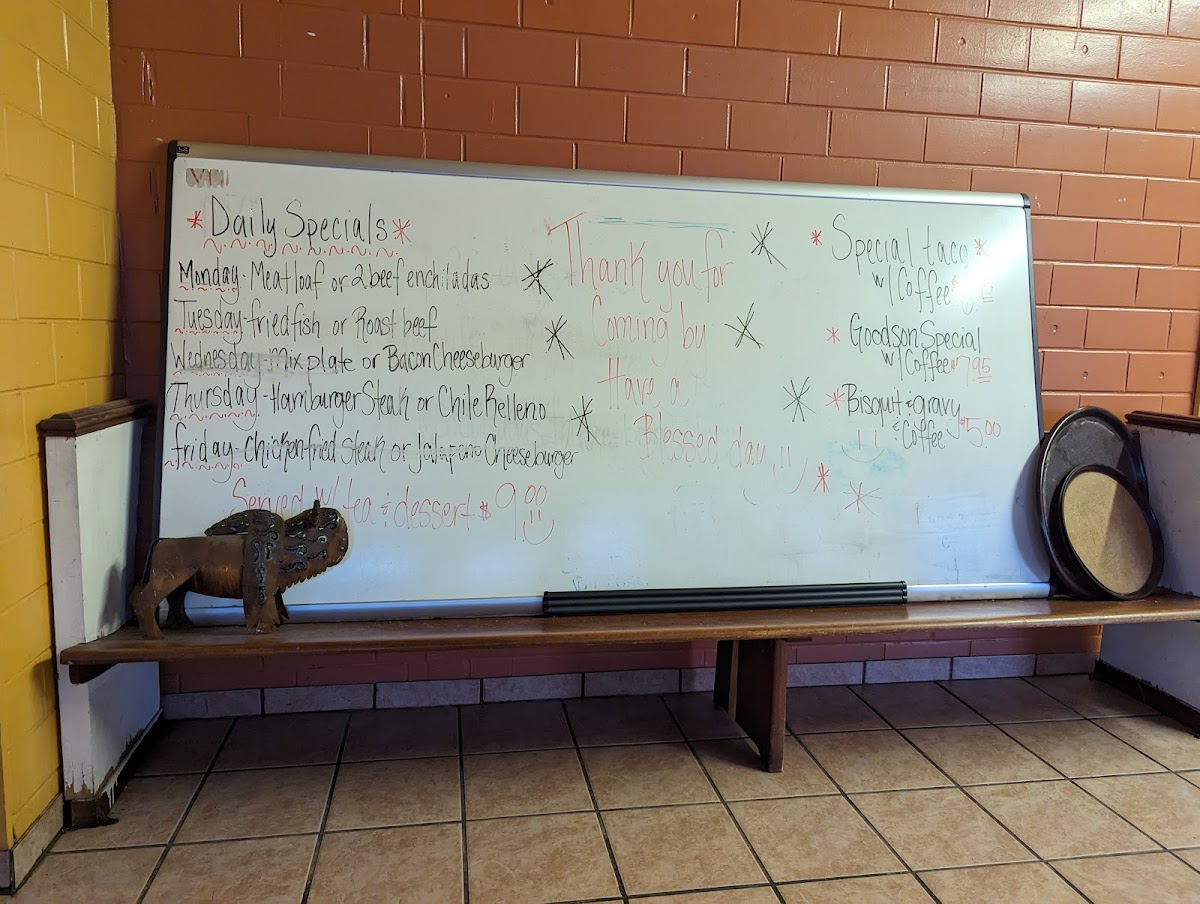 *Daily Specials*
Monday- Meatloaf or 2 beef enchiladas
Tuesday-fried fish or Roast beef
Wednesday-mix plate or Bacon Cheeseburger
Thursday-Hamburger Steak or Chile Relleno
friday-Chicken fried steak or Jalapeno Cheeseburger
Served w/ tea & dessert $9.00
Thank you for
Coming by
Have a
Blessed day
*Special taco*
w/Coffee
*Goodson Special
w/Coffee $7.95
*Bisquit & gravy
& Coffee $5.00